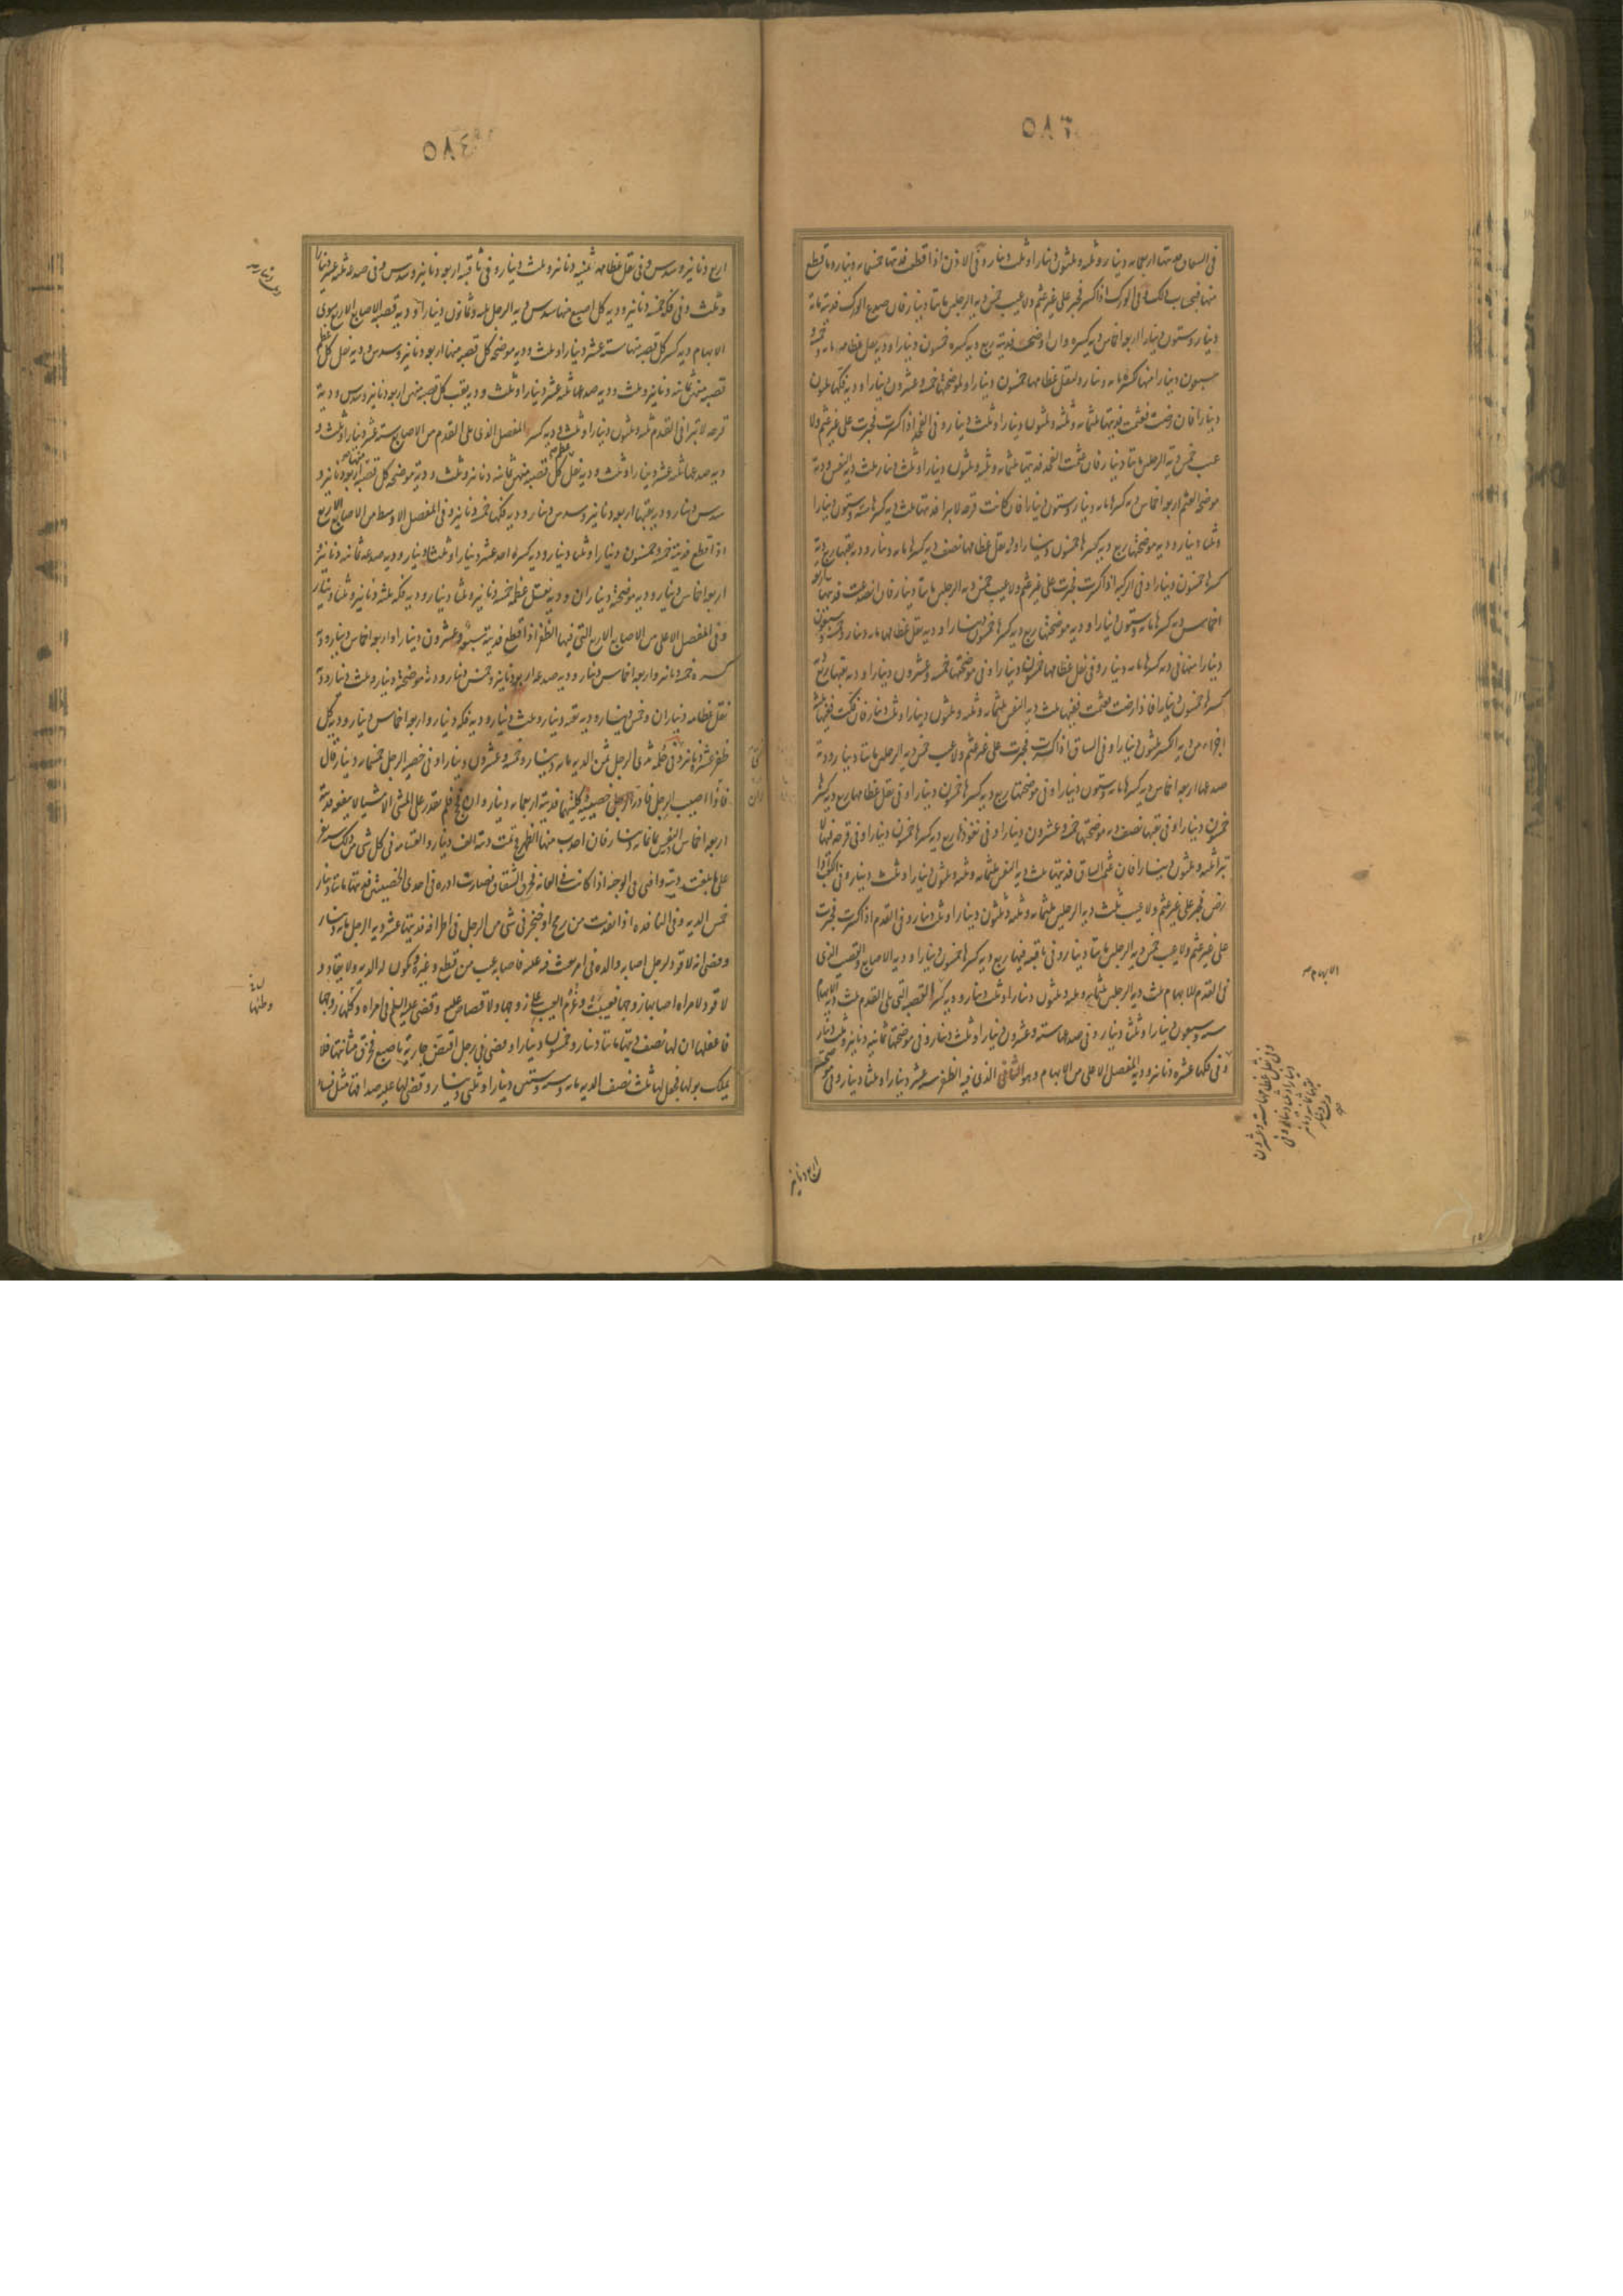 ٥٨٣
في السحاق موضحتها اربعمائه دينار وثلثه وثلثون دينارا وثلث دينار وفي الاذن اذا قطعت فديتها خمسمائه دينار وما قطع
منها فبحساب ذلك وفي الورك اذا كسر فجبر على غير عثم ولا عيب خمس ديه الرجلين مائتا دينار فان صدع الورك فديته مائه
دينار وستون دينارا اربعه اخماس ديه كسره وان اوضحت فديته ربع ديه كسره خمسون دينارا وديه نقل عظامه مائه وخمسه و
سبعون دينارا منها لكسرها مائه دينار ولنقل عظامها خمسون دينارا ولموضحتها خمسه وعشرون دينارا وديه فكها ثلثون
دينارا فان رضت فعثمت فديتها ثلثمائه وثلثه وثلثون دينارا وثلث دينار وفي الفخذ اذا كسرت فجبرت على غير عثم ولا
عيب خمس ديه الرجلين مائتا دينار فان عثمت الفخذ فديتها ثلثمائه وثلثه وثلثون دينارا وثلث دينار ثلث ديه النفس وديه
موضحه العثم اربعه اخماس ديه كسرها مائه دينار وستون دينارا فان كانت قرحه لا تبرا فديتها ثلث ديه كسرها سته وستون دينارا
وثلثا دينار وديه موضحتها ربع ديه كسرها خمسون دينارا وديه نقل عظامها نصف ديه كسرها مائه دينار وديه نقبها ربع ديه
كسرها خمسون دينارا وفي الركبه اذا كسرت فجبرت على غير عثم ولا عيب خمس ديه الرجلين مائتا دينار فان انصدعت فديتها اربعه
اخماس ديه كسرها مائه وستون دينارا وديه موضحتها ربع ديه كسرها خمسون دينارا وديه نقل عظامها مائه دينار وخمسه وسبعون
دينارا منها في ديه كسرها مائه دينار وفي نقل عظامها خمسون دينارا وفي موضحتها خمسه وعشرون دينارا وديه نقبها ربع ديه
كسرها خمسون دينارا فاذا رضت فعثمت ففيها ثلث ديه النفس ثلثمائه وثلثه وثلثون دينارا وثلث دينار فان فكت ففيها ثلثه
اجزاء من ديه الكسر ثلثون دينارا وفي الساق اذا كسرت فجبرت على غير عثم ولا عيب خمس ديه الرجلين مائتا دينار وديه
صدعها اربعه اخماس ديه كسرها مائه وستون دينارا وفي موضحتها ربع ديه كسرها خمسون دينارا وفي نقل عظامها ربع ديه كسرها
خمسون دينارا وفي نقبها نصف ديه موضحتها خمسه وعشرون دينارا وفي نفوذها ربع ديه كسرها خمسون دينارا وفي قرحه فيها لا
تبرا ثلثه وثلثون دينارا فان عثم الساق فديتها ثلث ديه النفس ثلثمائه وثلثه وثلثون دينارا وثلث دينار وفي الكعب اذا
رض فجبر على غير عثم ولا عيب ثلث ديه الرجلين ثلثمائه وثلثه وثلثون دينارا وثلث دينار وفي القدم اذا كسرت فجبرت
على غير عثم ولا عيب خمس ديه الرجلين مائتا دينار وفي ناقبه فيها ربع ديه كسرها خمسون دينارا وديه الاصابع والقصب الذي
في القدم للابهام ثلث ديه الرجلين ثلثمائه وثلثه وثلثون دينارا وثلث دينار وديه كسرها القصبه التي تلي القدم ثلث ديه الابهام
سته وستون دينارا وثلثا دينار وفي صدعها سته وعشرون دينارا وثلثا دينار وفي موضحتها ثمانيه دنانير وثلث دينار
وفي فكها عشره دنانير وديه المفصل الاعلى من الابهام وهو الثاني الذي فيه الظفر سته عشر دينارا وثلثا دينار وفي موضحته
الابهام
وفي نقل عظامها سته وعشرون
دينارا وثلثا دينار وفي
نقبها ثمانيه دنانير
وثلث دينار
اربع دنانير
٥٨٤
اربع دنانير وسدس وفي نقل عظامه ثمنيه دنانير وثلث دينار وفي ناقبته اربعه دنانير وسدس وفي صدعه ثلثه عشر دينارا
وثلث وفي فكه خمسه دنانير وديه كل اصبع منها سدس ديه الرجل ثلثه وثمانون دينارا وديه قصبه الاصابع الاربع سوى
الابهام ديه كسر كل قصبه منها سته عشر دينارا وثلث وديه موضحه كل قصبه منها اربعه دنانير وسدس وديه نقل كل عظم
قصبه منهن ثمانيه دنانير وثلث وديه صدعها ثلثه عشر دينارا وثلث وديه نقب كل قصبه منهن اربعه دنانير وسدس وديه
قرحه لا تبرا في القدم ثلثه وثلثون دينارا وثلث وديه كسر المفصل الذي يلي القدم من الاصابع سته عشر دينارا وثلث و
ديه صدعها ثلثه عشر دينارا وثلث وديه نقل عظم كل قصبه منهن ثمانيه دنانير وثلث وديه موضحه كل قصبه اربعه دنانير و
سدس دينار وديه نقبها اربعه دنانير وسدس دينار وديه فكها خمسه دنانير وفي المفصل الاوسط من الاصابع الاربع
اذا قطع فديته خمسه وخمسون دينارا وثلثا دينار وديه كسره احد عشر دينارا وثلثا دينار وديه صدعه ثمانيه دنانير و
اربعه اخماس دينار وديه موضحته ديناران وديه نقل عظمه خمسه دنانير وثلثا دينار وديه فكه ثلثه دنانير وثلثا دينار
وفي المفصل الاعلى من الاصابع الاربع التي فيها الظفر اذا قطع فديته سبعه وعشرون دينارا واربعه اخماس دينار وديه
كسره خمسه دنانير واربعه اخماس دينار وديه صدعه اربعه دنانير وخمس دينار وديه موضحته دينار وثلث دينار وديه
نقل عظامه ديناران وخمس دينار وديه نقبه دينار وثلث دينار وديه فكه دينار واربعه اخماس دينار وديه كل
ظفر عشره دنانير وفي حلمه ثدى الرجل ثمن الديه مائه دينار وخمسه وعشرون دينارا وفي خصيه الرجل خمسمائه دينار قال
فاذا اصيب رجل فادر خصيتيه كلتيهما فديته اربعمائه دينار وان فحج فلم يقدر على المشي الا مشيا لا ينفعه فديته
اربعه اخماس ديه النفس ثمانمائه دينار فان احدب منها الظهر فحينئذ تمت ديته الف دينار والقسامه في كل شي من ذلك سته نفر
على ما بلغت ديته وافتى في الوجيه اذا كانت في العانه فخرق الصفاق فصارت ادره في احدى الخصيتين فديتها مائتا دينار
خمس الديه وفي النافذه اذا نفذت من رمح او خنجر في شي من الرجل في اطرافه فديتها عشر ديه الرجل مائه دينار
وقضى انه لا قود لرجل اصابه والده في امر يعيب فيه عليه فاصابه عيب من قطع وغيره ويكون له الديه ولا يقاد و
لا قود لامراه اصابها زوجها فعيبت وغرم العيب على زوجها ولا قصاص عليه وقضى عليه السلم في امراه ركلها زوجها
فاعفلها ان لها نصف ديتها مائتا دينار وخمسون دينارا وقضى في رجل افتض جاريه باصبعه فخرق مثانتها فلا
يملك بولها فجعل لها ثلث نصف الديه مائه وسته وستين دينارا وثلثى دينار وقضى لها عليه صداقها مثل نساء